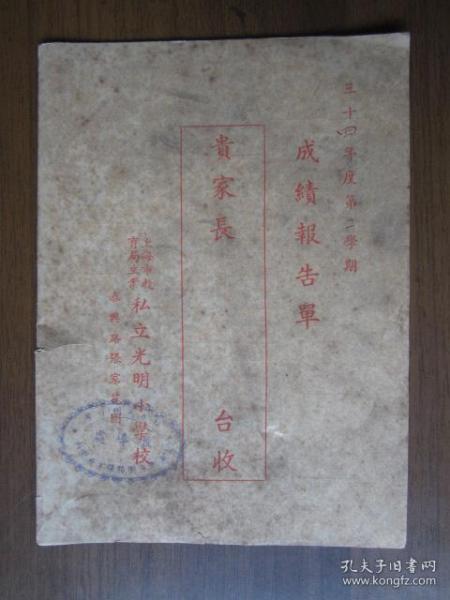 三十四年度第二學期
成績報告單
貴家長 台收
上海市教
育局立案
私立光明小學校
泰興路張家花園
孔夫子旧书网
www.kongfz.com